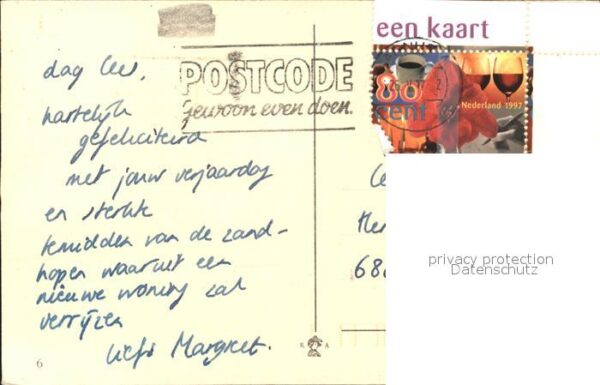 een kaart
POSTCODE
gewoon even doen.
80
cent
Nederland 1997
dag Cees,
hartelijk
gefeliciteerd
met jouw verjaardag
en sterkte
temidden van de zand-
hopen waaruit een
nieuwe woning zal
verrijzen
liefs Margreet.
68
privacy protection
Datenschutz
6
R A